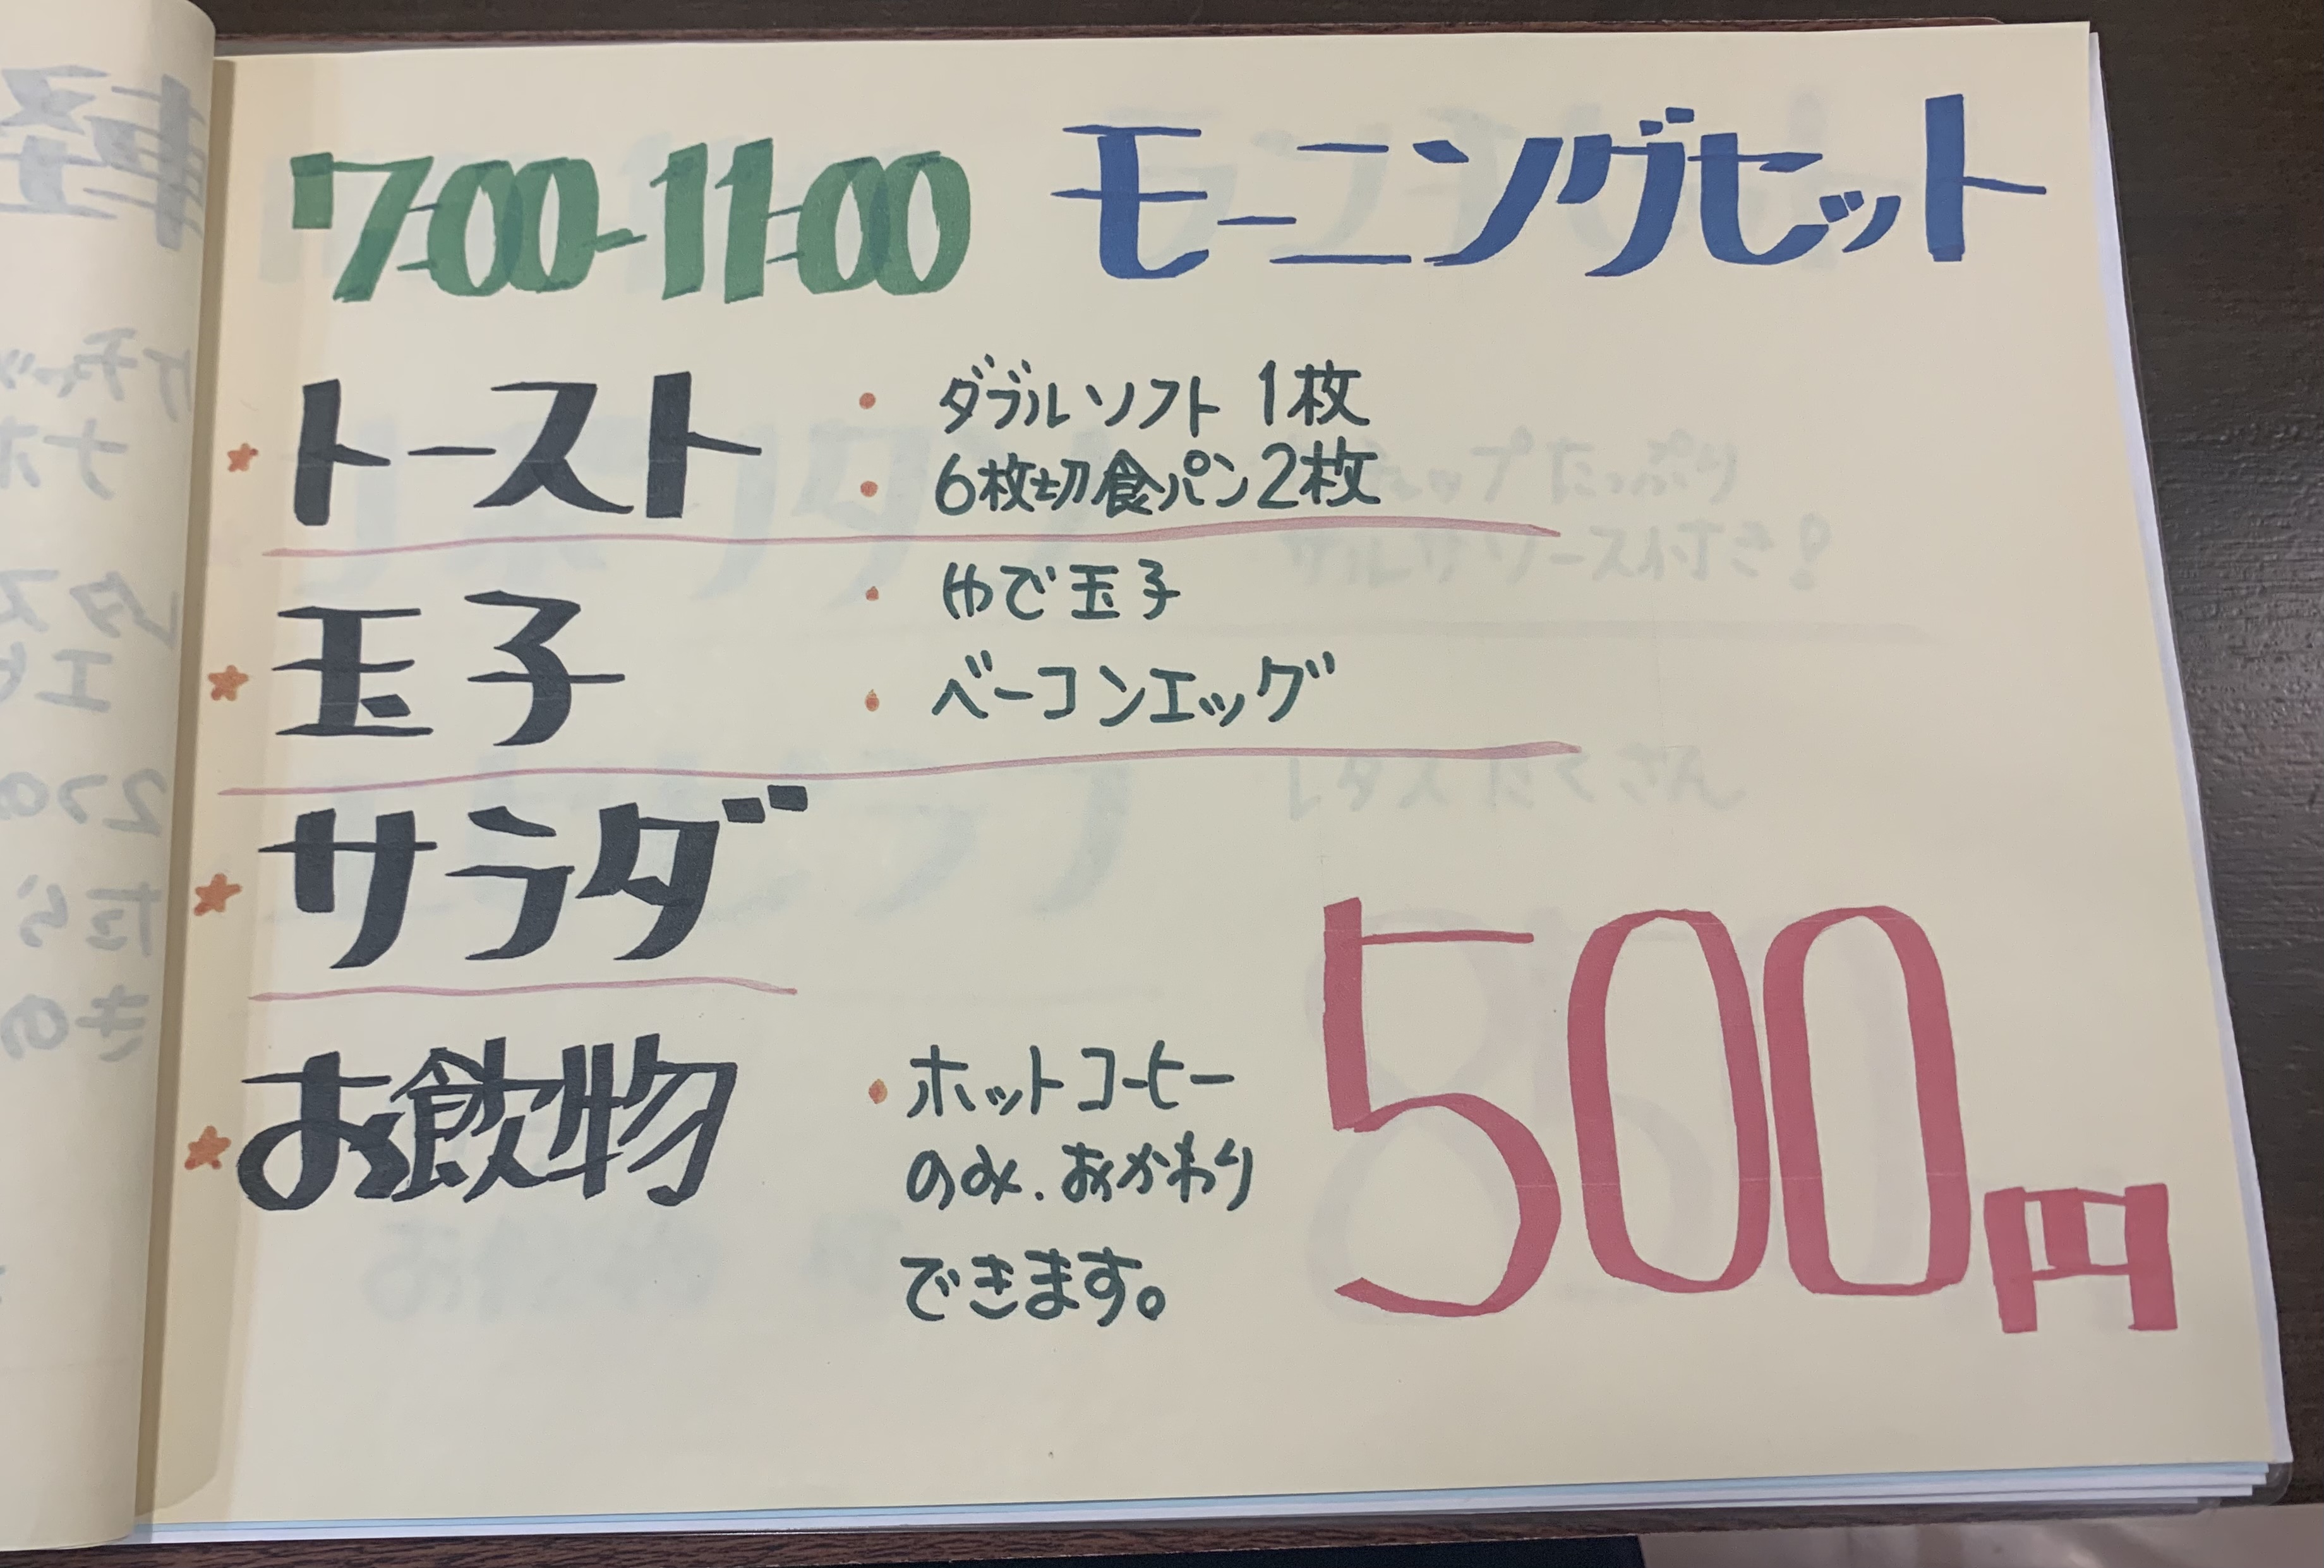 7:00-11:00 モーニングセット
トースト
・ダブルソフト 1枚
・6枚切食パン2枚
玉子
・ゆで玉子
・ベーコンエッグ
サラダ
お飲物
・ホットコーヒー
のみ.おかわり
できます。
500円